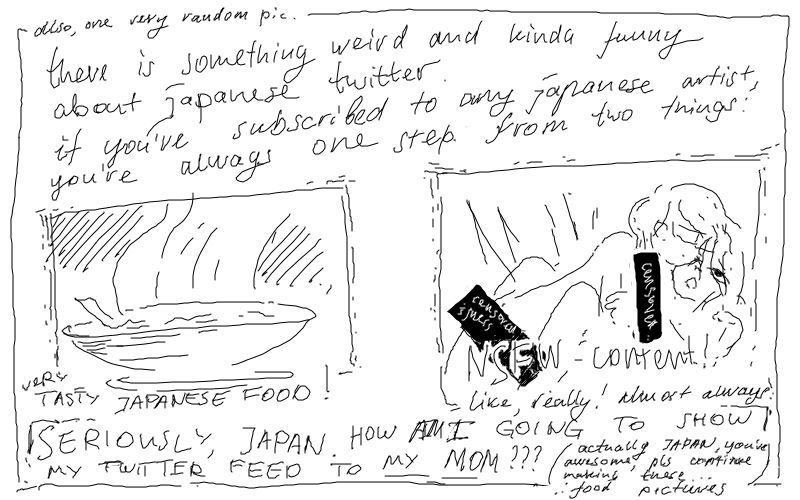 also, one very random pic.
there is something weird and kinda funny
about japanese twitter.
if you've subscribed to any japanese artist,
you're always one step from two things:
censored
censored
NSFW-content!
Like, really! Almost always!
VERY
TASTY JAPANESE FOOD!
SERIOUSLY, JAPAN. HOW AM I GOING TO SHOW
MY TWITTER FEED TO MY MOM???
actually JAPAN, you're
awesome, pls continue
making these...
..food pictures